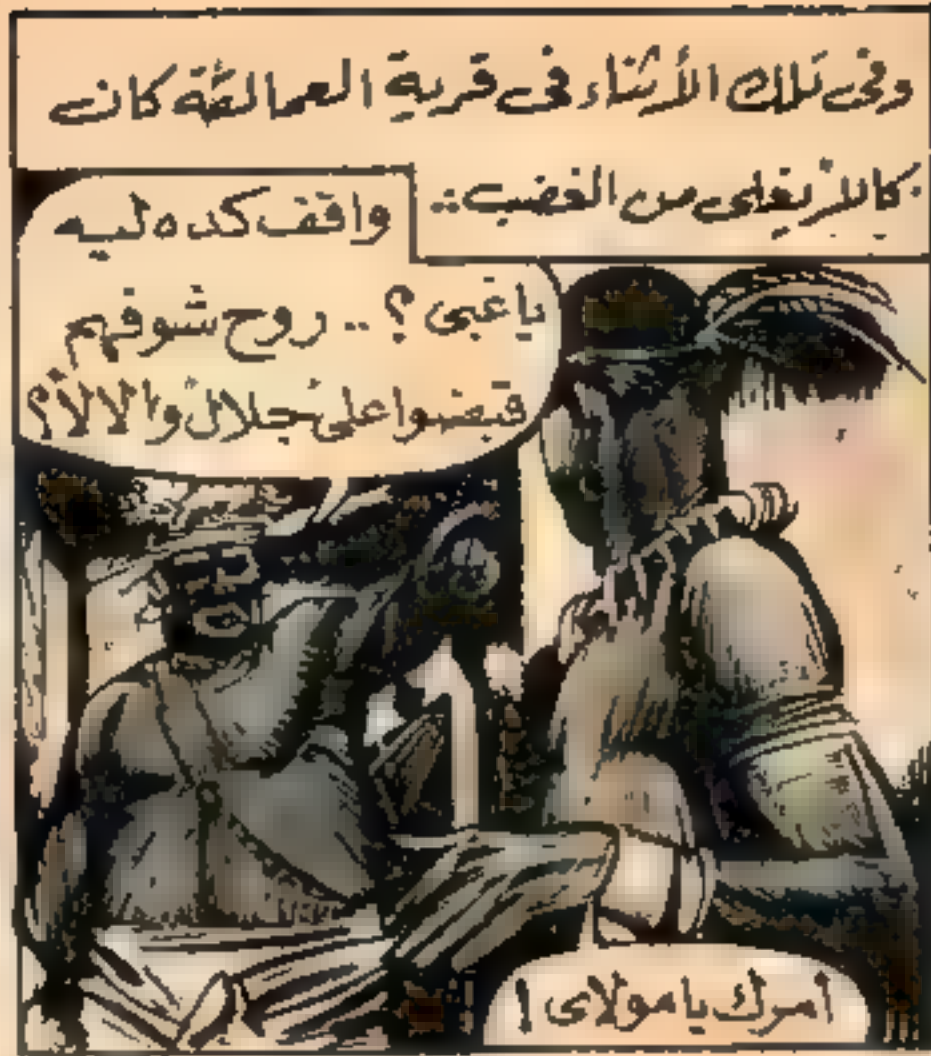 وفى تلك الأثناء فى قرية العمالقة كان
كالار يغلى من الغضب..
واقف كده ليه
ياغبى؟.. روح شوفهم
قبضوا على جلال والا لأ؟
امرك يا مولاى!